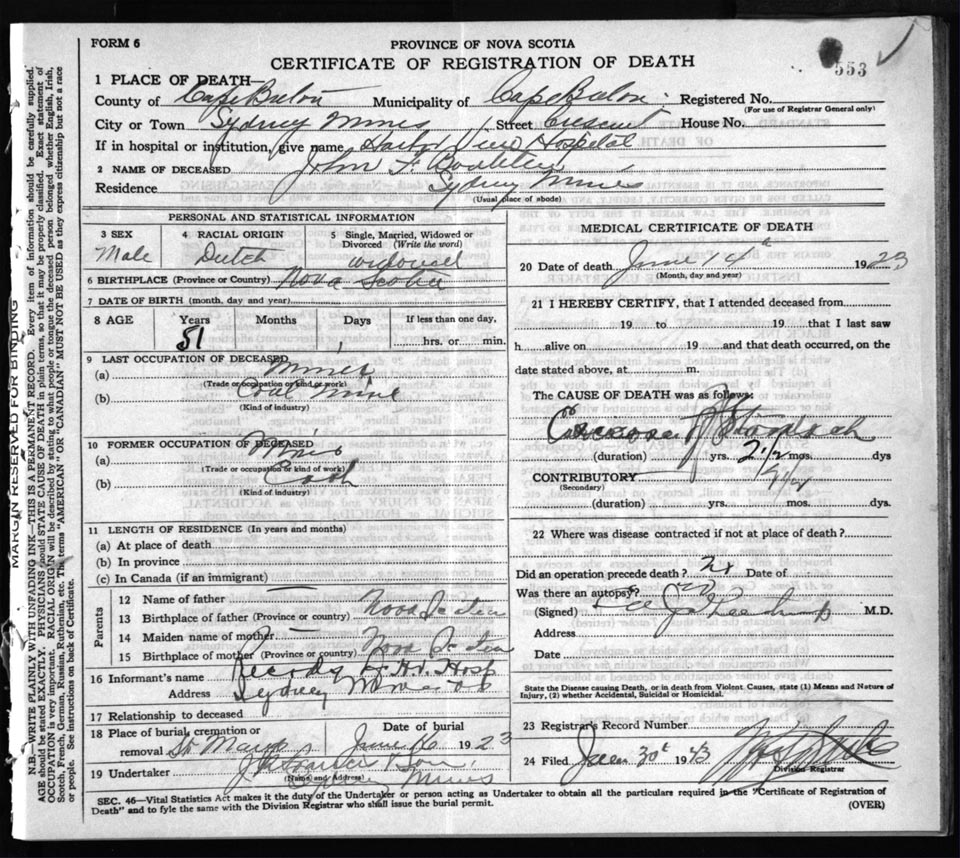 FORM 6
PROVINCE OF NOVA SCOTIA
CERTIFICATE OF REGISTRATION OF DEATH
553
1 PLACE OF DEATH—
County of Cape Breton Municipality of Cape Breton Registered No.
(For use of Registrar General only)
City or Town Sydney Mines Street Crescent House No.
If in hospital or institution, give name Harbor View Hospital
2 NAME OF DECEASED John F.
Residence Sydney Mines
(Usual place of abode)
PERSONAL AND STATISTICAL INFORMATION
3 SEX 4 RACIAL ORIGIN 5 Single, Married, Widowed or Divorced (Write the word)
Male Dutch widowed
6 BIRTHPLACE (Province or Country) Nova Scotia
7 DATE OF BIRTH (month, day and year)
8 AGE Years Months Days If less than one day,
51 hrs. or min.
9 LAST OCCUPATION OF DECEASED
(a) Miner
(Trade or occupation or kind of work)
(b) Coal Mine
(Kind of industry)
10 FORMER OCCUPATION OF DECEASED
(a)
(Trade or occupation or kind of work)
(b)
(Kind of industry)
11 LENGTH OF RESIDENCE (In years and months)
(a) At place of death
(b) In province
(c) In Canada (if an immigrant)
Parents
12 Name of father
13 Birthplace of father (Province or country) Nova Scotia
14 Maiden name of mother
15 Birthplace of mother (Province or country) Nova Scotia
16 Informant's name Records H. V. Hosp
Address Sydney Mines
17 Relationship to deceased
18 Place of burial, cremation or removal Date of burial
St. Marys June 16 1923
19 Undertaker
(Name and Address)
Mines
MEDICAL CERTIFICATE OF DEATH
20 Date of death June 14 1923
(Month, day and year)
21 I HEREBY CERTIFY, that I attended deceased from
19 to 19 that I last saw
h alive on 19 and that death occurred, on the
date stated above, at m.
The CAUSE OF DEATH was as follows:
Carcinoma of Stomach
(duration) yrs. 2 1/2 mos. dys
CONTRIBUTORY
(Secondary)
(duration) yrs. mos. dys.
22 Where was disease contracted if not at place of death?
Did an operation precede death? Date of
Was there an autopsy?
(Signed) M.D.
Address
Date
State the Disease causing Death, or in death from Violent Causes, state (1) Means and Nature of Injury, (2) whether Accidental, Suicidal or Homicidal.
23 Registrar's Record Number
24 Filed 30
Division Registrar
SEC. 46—Vital Statistics Act makes it the duty of the Undertaker or person acting as Undertaker to obtain all the particulars required in the "Certificate of Registration of
Death" and to fyle the same with the Division Registrar who shall issue the burial permit.
(OVER)
MARGIN RESERVED FOR BINDING
N.B.—WRITE PLAINLY WITH UNFADING INK—THIS IS A PERMANENT RECORD. Every item of information should be carefully supplied.
AGE should be stated EXACTLY. PHYSICIANS should STATE CAUSE OF DEATH in plain terms, so that it may be properly classified. Exact statement of
OCCUPATION is very important. RACIAL ORIGIN will be described by stating to what people or tongue the deceased person belonged whether English, Irish,
Scotch, French, German, Russian, Ruthenian, etc. The terms "AMERICAN" OR "CANADIAN" MUST NOT BE USED as they express citizenship but not a race
or people. See instructions on back of Certificate.